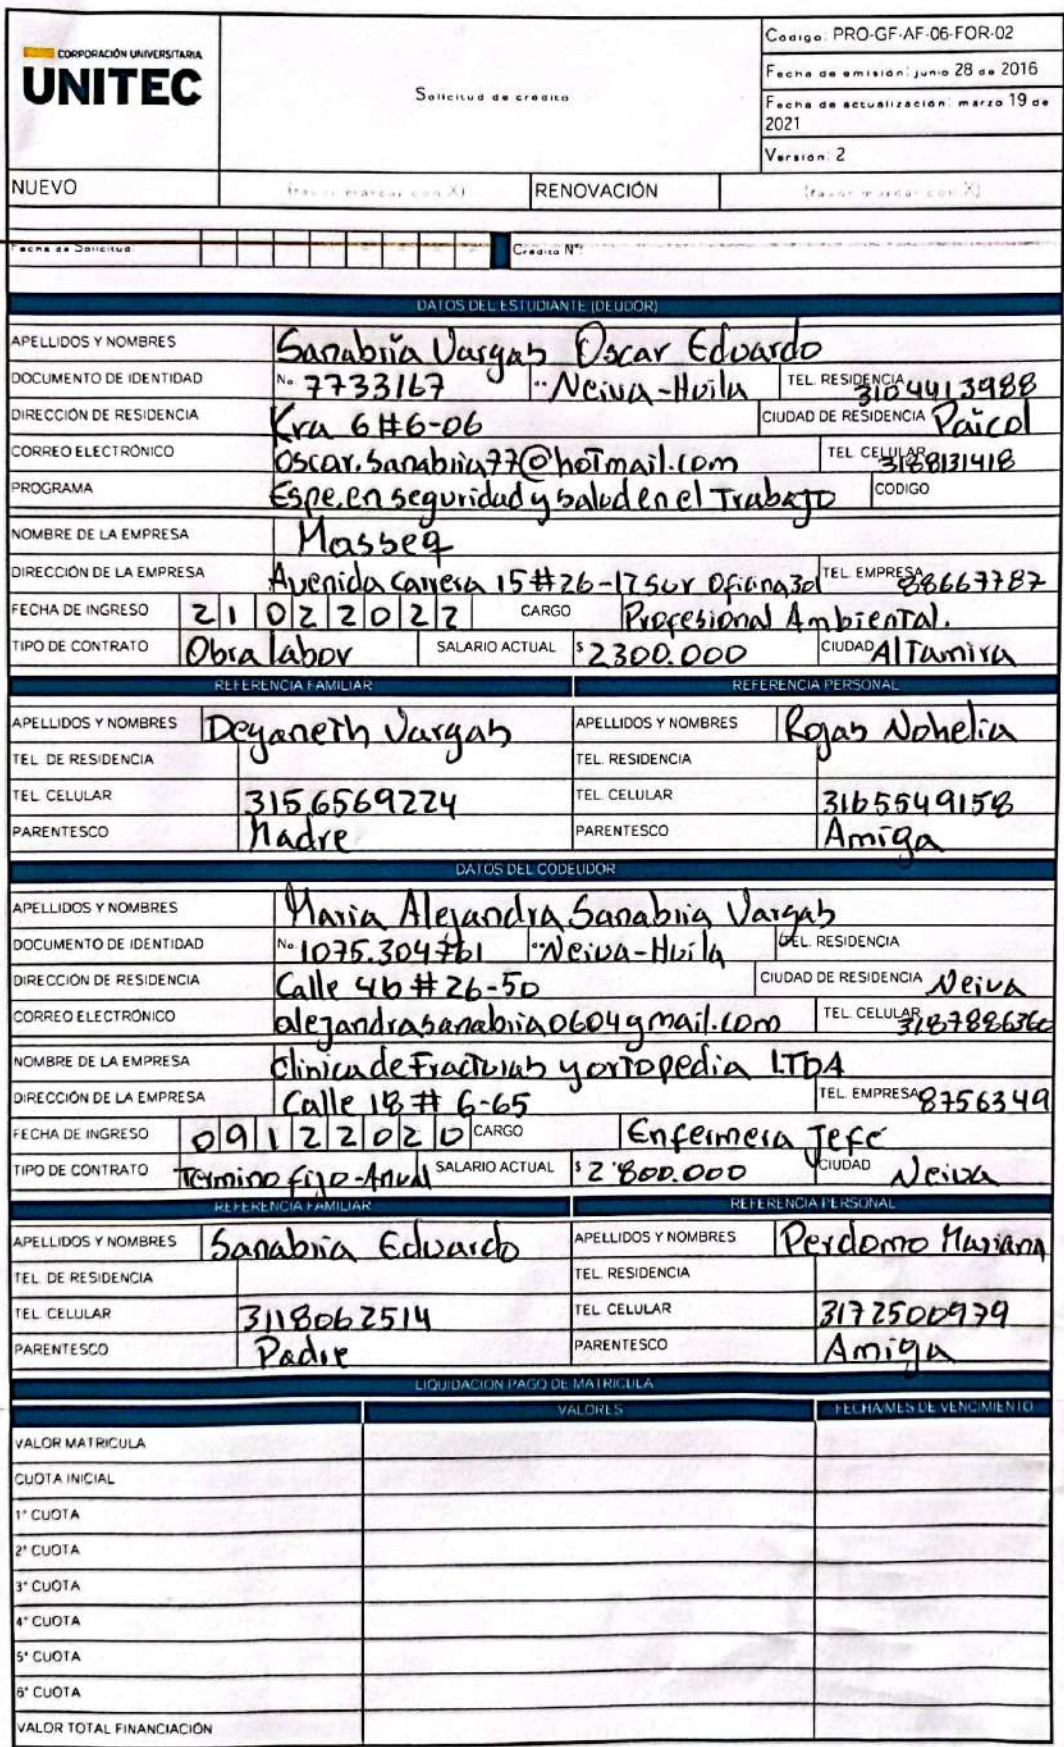 CORPORACIÓN UNIVERSITARIA
UNITEC
Solicitud de credito
Codigo: PRO-GF-AF-06-FOR-02
Fecha de emisión: junio 28 de 2016
Fecha de actualización: marzo 19 de 2021
Versión: 2
NUEVO (favor marcar con X) RENOVACIÓN (favor marcar con X)
Fecha de Solicitud: Crédito N°:
DATOS DEL ESTUDIANTE (DEUDOR)
APELLIDOS Y NOMBRES Sanabria Vargas Oscar Eduardo
DOCUMENTO DE IDENTIDAD No. 7733167 Neiva-Huila TEL. RESIDENCIA 3104413988
DIRECCIÓN DE RESIDENCIA Kra 6#6-06 CIUDAD DE RESIDENCIA Paicol
CORREO ELECTRÓNICO Oscar.Sanabria77@hotmail.com TEL CELULAR 3188131418
PROGRAMA Espe.en seguridad y salud en el Trabajo CODIGO
NOMBRE DE LA EMPRESA Masseq
DIRECCIÓN DE LA EMPRESA Avenida carrera 15#26-17 sur Oficina 301 TEL. EMPRESA 88667787
FECHA DE INGRESO 21022022 CARGO Profesional Ambiental.
TIPO DE CONTRATO Obra labor SALARIO ACTUAL $ 2300.000 CIUDAD Altamira
REFERENCIA FAMILIAR REFERENCIA PERSONAL
APELLIDOS Y NOMBRES Deyaneth Vargas APELLIDOS Y NOMBRES Rojas Nohelia
TEL. DE RESIDENCIA TEL. RESIDENCIA
TEL. CELULAR 3156569224 TEL. CELULAR 3165549158
PARENTESCO Madre PARENTESCO Amiga
DATOS DEL CODEUDOR
APELLIDOS Y NOMBRES Maria Alejandra Sanabria Vargas
DOCUMENTO DE IDENTIDAD No. 1075.304761 Neiva-Huila TEL. RESIDENCIA
DIRECCIÓN DE RESIDENCIA Calle 4b # 26-50 CIUDAD DE RESIDENCIA Neiva
CORREO ELECTRÓNICO alejandrasanabria0604gmail.com TEL. CELULAR 3187886360
NOMBRE DE LA EMPRESA Clinica de Fracturas y ortopedia LTDA
DIRECCIÓN DE LA EMPRESA Calle 18 # 6-65 TEL. EMPRESA 8756349
FECHA DE INGRESO 09122020 CARGO Enfermera Jefe
TIPO DE CONTRATO Termino fijo-Anual SALARIO ACTUAL $ 2'800.000 CIUDAD Neiva
REFERENCIA FAMILIAR REFERENCIA PERSONAL
APELLIDOS Y NOMBRES Sanabria Eduardo APELLIDOS Y NOMBRES Perdomo Mariana
TEL. DE RESIDENCIA TEL. RESIDENCIA
TEL. CELULAR 3118062514 TEL. CELULAR 3172500979
PARENTESCO Padre PARENTESCO Amiga
LIQUIDACION PAGO DE MATRICULA
VALORES FECHA/MES DE VENCIMIENTO
VALOR MATRICULA
CUOTA INICIAL
1° CUOTA
2° CUOTA
3° CUOTA
4° CUOTA
5° CUOTA
6° CUOTA
VALOR TOTAL FINANCIACIÓN